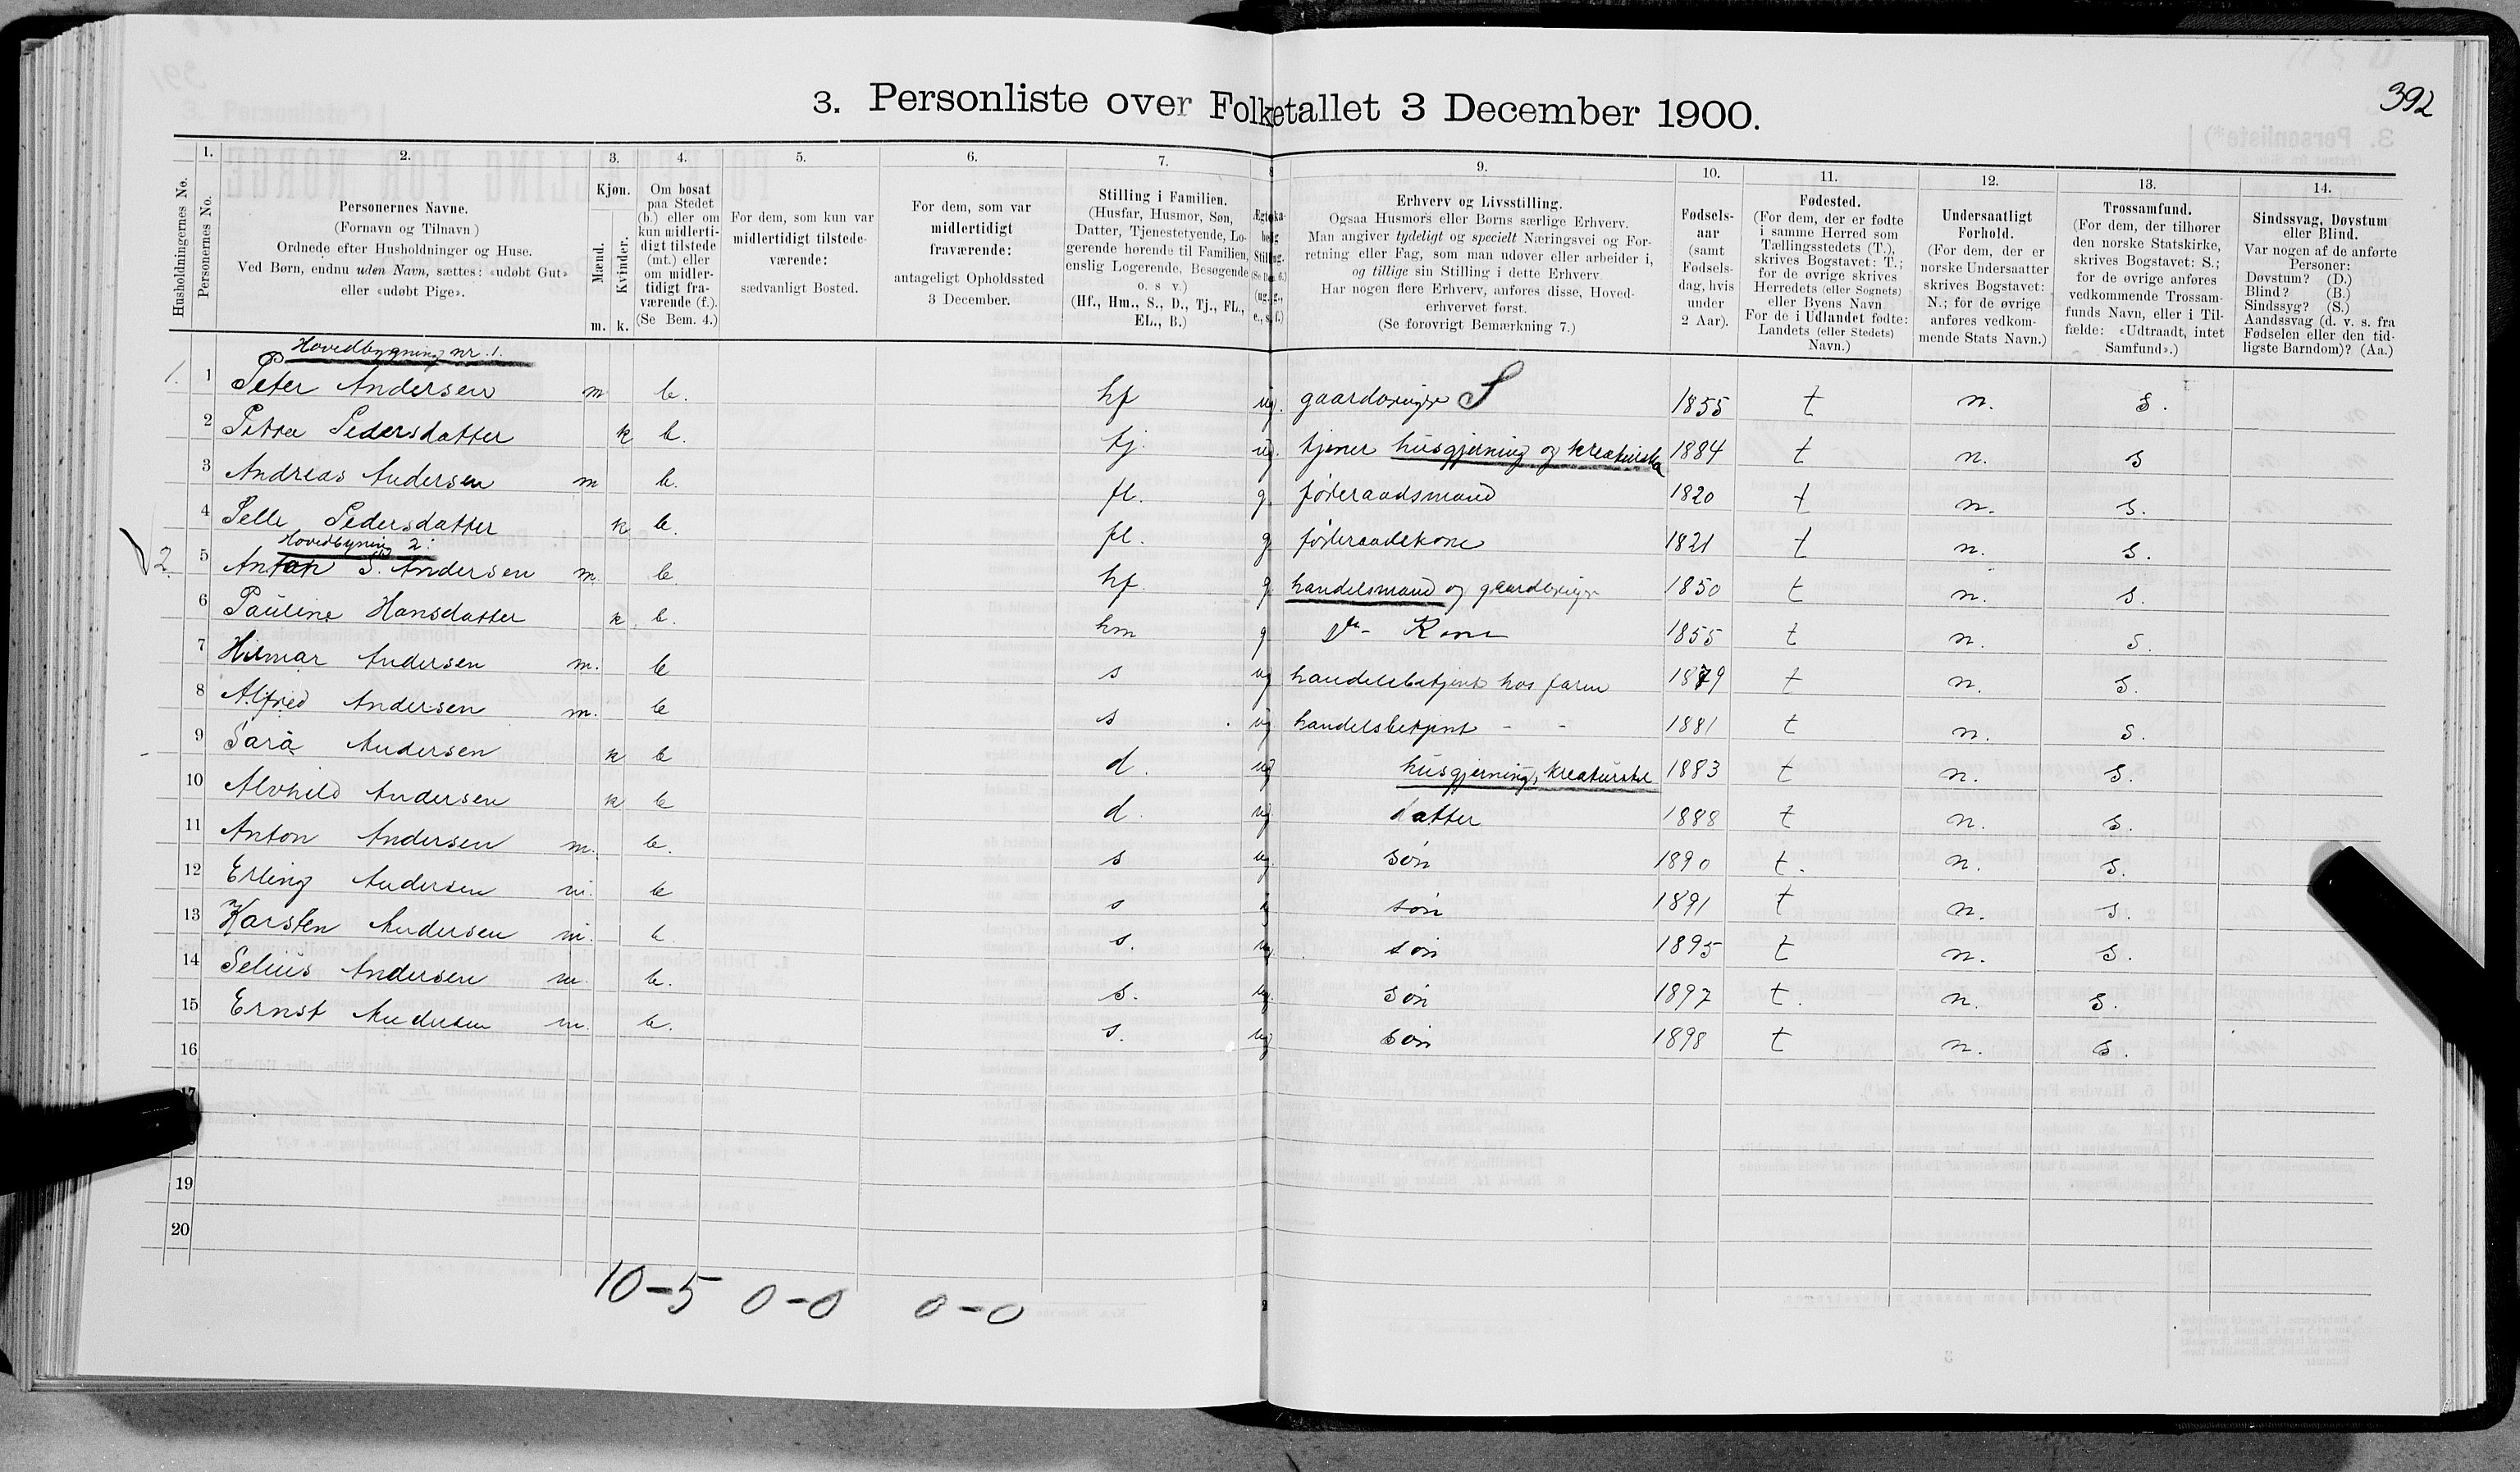 392
3. Personliste over Folketallet 3 December 1900.
1. 2. 3. 4. 5. 6. 7. 8 9. 10. 11. 12. 13. 14.
Husholdningernes No.
Personernes No.
Personernes Navne.
(Fornavn og Tilnavn)
Ordnede efter Husholdninger og Huse.
Ved Børn, endnu uden Navn, sættes: «udøbt Gut»
eller «udøbt Pige».
Kjøn.
Mænd.
Kvinder.
m. k.
Om bosat
paa Stedet
(b.) eller om
kun midlerti-
digt tilstede
(mt.) eller
om midler-
tidigt fra-
værende (f.).
(Se Bem. 4.)
For dem, som kun var
midlertidigt tilstede-
værende:
sædvanligt Bosted.
For dem, som var
midlertidigt
fraværende:
antageligt Opholdssted
3 December.
Stilling i Familien.
(Husfar, Husmor, Søn,
Datter, Tjenestetyende, Lo-
gerende hørende til Familien,
enslig Logerende, Besøgende
o. s. v.)
(Hf., Hm., S., D., Tj., FL.,
EL., B.)
Erhverv og Livsstilling.
Ogsaa Husmors eller Børns særlige Erhverv.
Man angiver tydeligt og specielt Næringsvei og For-
retning eller Fag, som man udøver eller arbeider i,
og tillige sin Stilling i dette Erhverv.
Har nogen flere Erhverv, anføres disse, Hoved-
erhvervet først.
(Se forøvrigt Bemærkning 7.)
Fødsels-
aar
(samt
Fødsels-
dag, hvis
under
2 Aar).
Fødested.
(For dem, der er fødte
i samme Herred som
Tællingsstedets (T.),
skrives Bogstavet: T.;
for de øvrige skrives
Herredets (eller Sognets)
eller Byens Navn.
For de i Udlandet fødte:
Landets (eller Stedets)
Navn.)
Undersaatligt
Forhold.
(For dem, der er
norske Undersaatter
skrives Bogstavet:
N.; for de øvrige
anføres vedkom-
mende Stats Navn.)
Trossamfund.
(For dem, der tilhører
den norske Statskirke,
skrives Bogstavet: S.;
for de øvrige anføres
vedkommende Trossam-
funds Navn, eller i Til-
fælde: «Udtraadt, intet
Samfund».)
Sindssvag, Døvstum
eller Blind.
Var nogen af de anførte
Personer:
Døvstum? (D.)
Blind? (B.)
Sindssyg? (S.)
Aandssvag (d. v. s. fra
Fødselen eller den tid-
ligste Barndom)? (Aa.)
Hovedbygning nr. 1.
1. 1 Peter Andersen m b. hf ug. S 1855 t n. s.
2 Petra Pedersdatter k b. tj. ug. tjener husgjerning og kreaturstel 1884 t n. s
3 Andreas Andersen m b. fl. g. føderaadsmand 1820 t n. s.
4 Pedersdatter k b. fl. g føderaadskone 1821 t n. s.
Hovedbygning 2:
2. 5 Anton S. Andersen m. b. hf. g handelsmand og 1850 t n. s.
6 Pauline Hansdatter k b. hm g Kone 1855 t n. s.
7 Hilmar Andersen m. b s ug handelsbetjent hos faren 1879 t n. s.
8 Alfred Andersen m. b s ug handelsbetjent - - 1881 t n. s.
9 Sara Andersen k b d. ug husgjerning, kreaturstel 1883 t n. s.
10 Alvhild Andersen k b d. ug. datter 1888 t n. s.
11 Anton Andersen m. b. s ug. søn 1890 t. n. s.
12 Erling Andersen m. b s søn 1891 t n. s.
13 Karsten Andersen m. b. s. ug søn 1895 t n. s.
14 Selius Andersen m. b. s. ug. søn 1897 t. n. s.
15 Ernst Andersen m. b. s. ug søn 1898 t n. s.
16
17
19
20
10-5 0-0 0-0